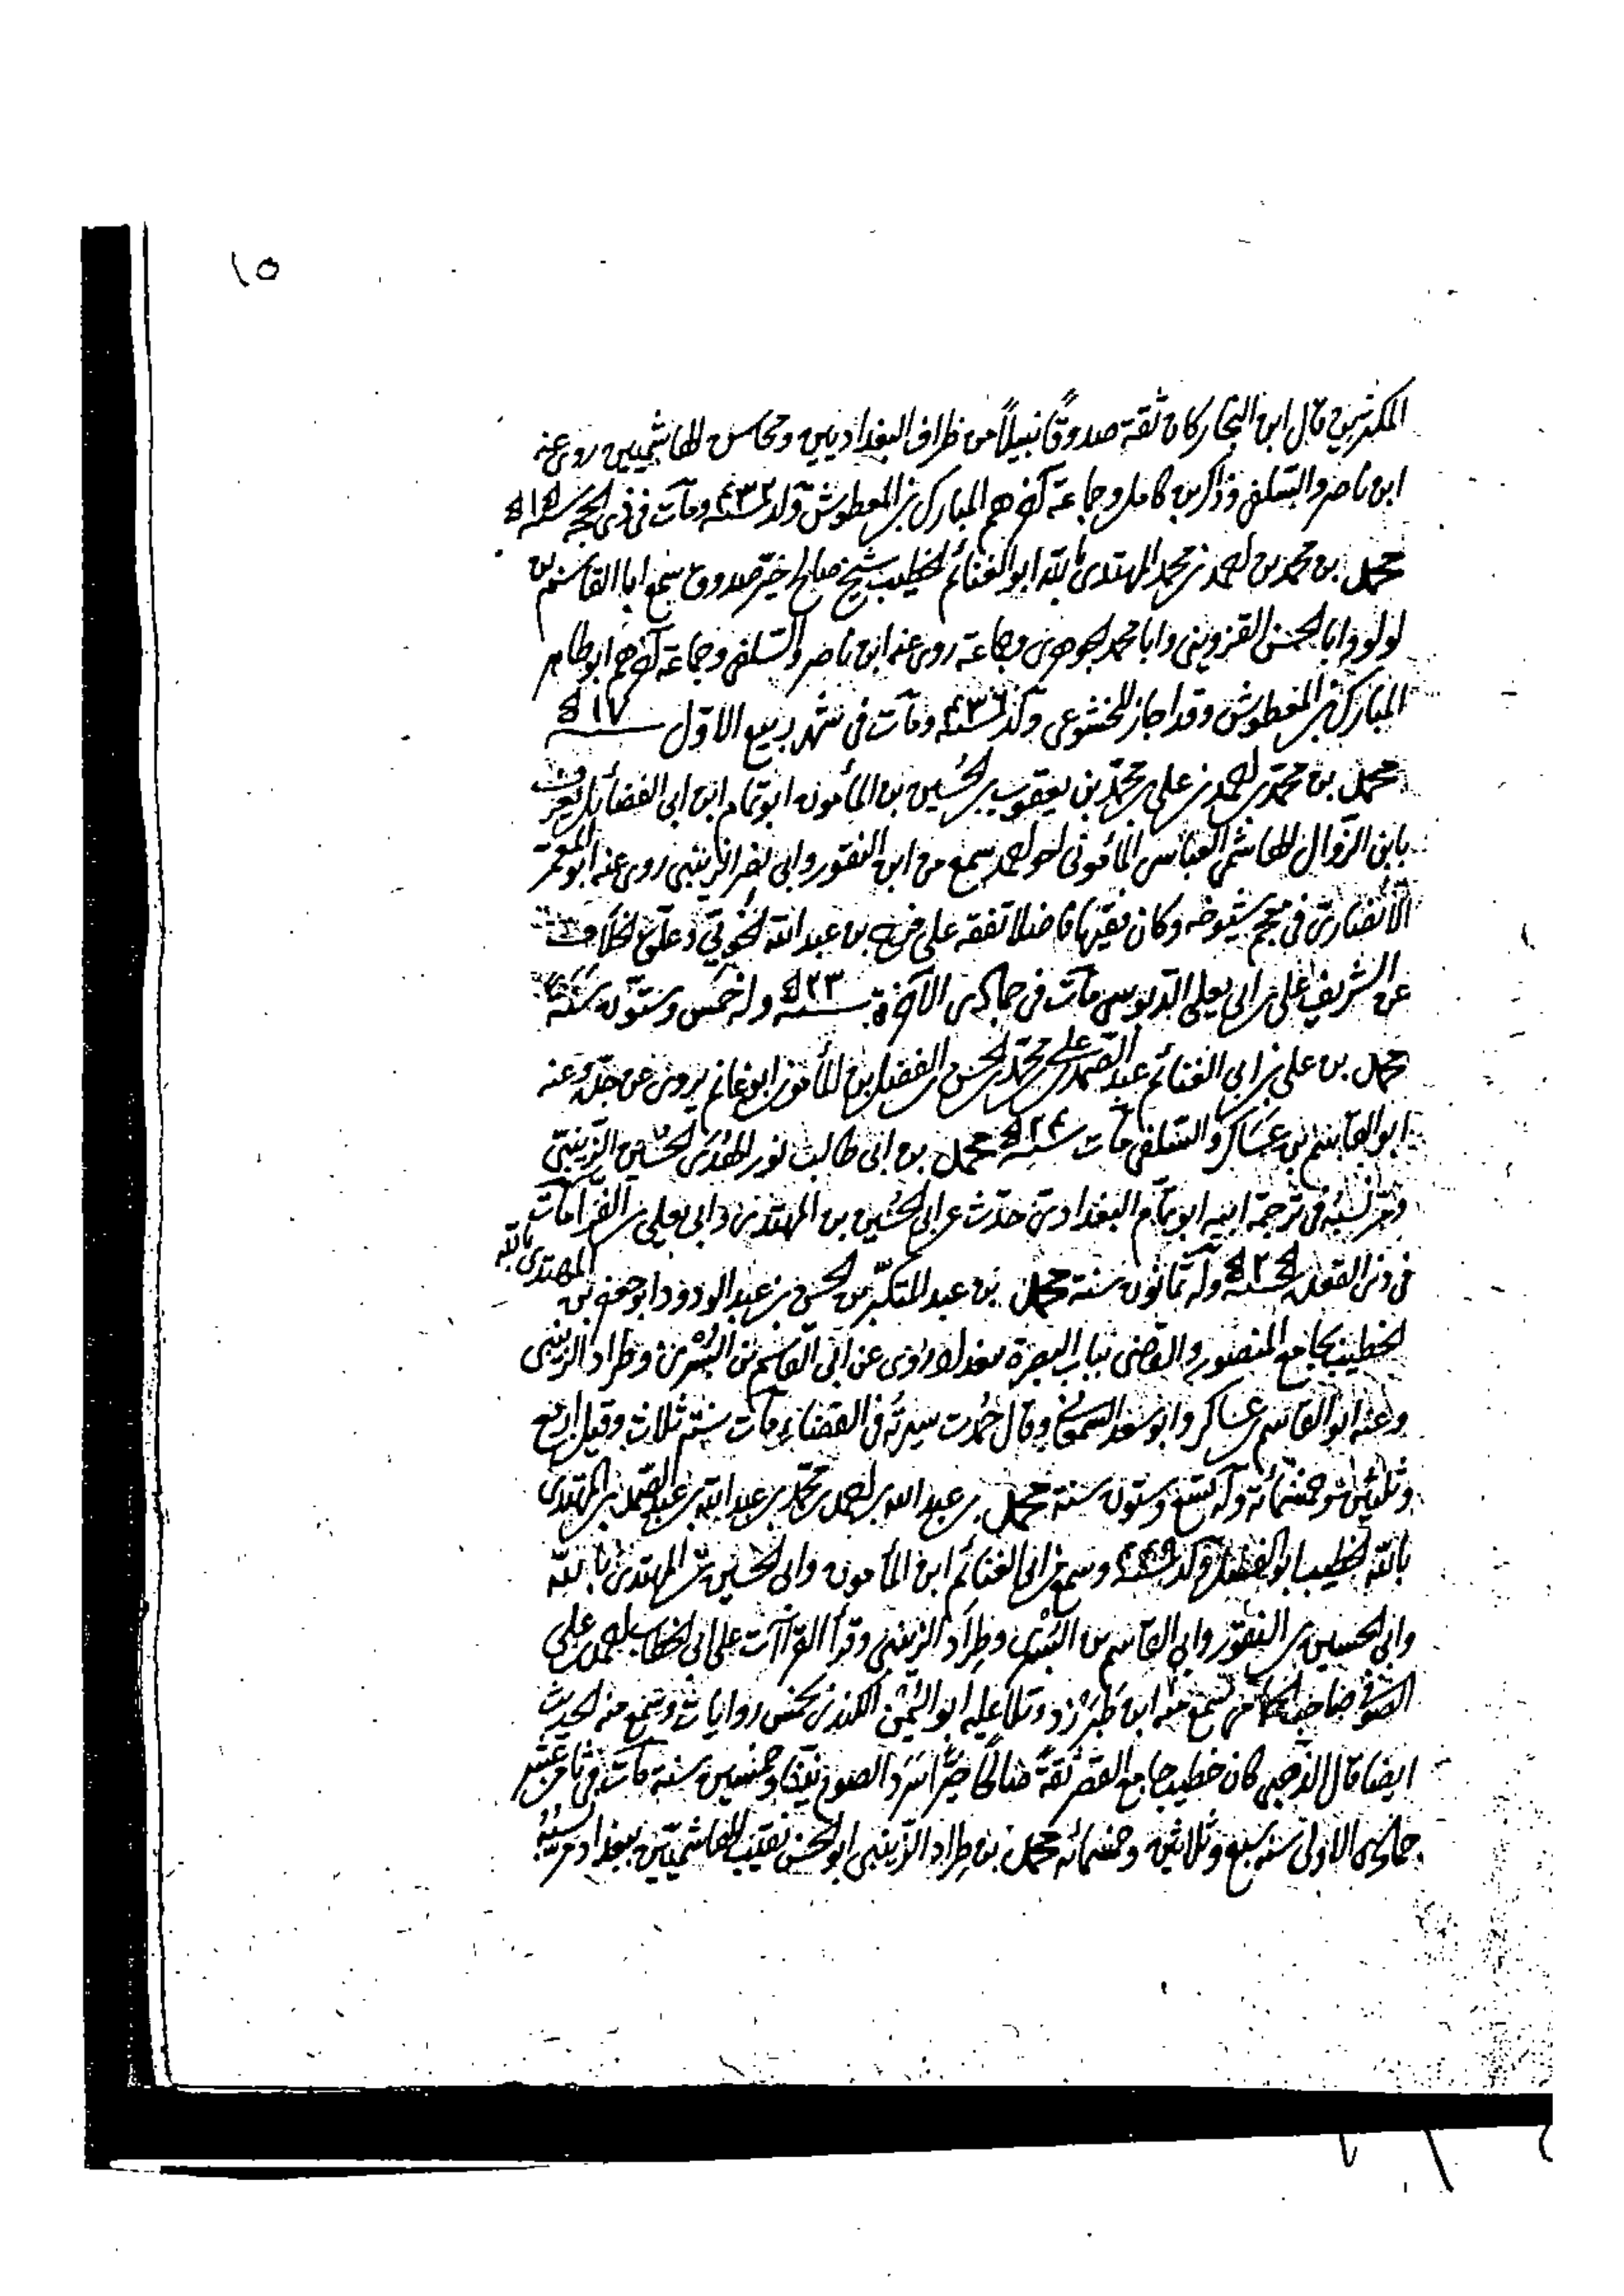 ١٥
المكثرين قال ابن النجار كان ثقة صدوقًا نبيلًا من ظراف البغداديين ومحاسن الهاشميين روى عنه
ابن ناصر والسلفي وذاكر بن كامل وجماعة آخرهم المبارك بن المعطوش ولد سنة ٤٣٢ ومات في ذي الحجة سنة ٥١٥
محمد بن محمد بن احمد بن محمد المهتدي بالله ابو الغنائم الخطيب شيخ صالح خيّر صدوق سمع ابا القاسم بن
لولو وابا الحسن القزويني وابا محمد الجوهري وجماعة روى عنه ابن ناصر والسلفي وجماعة آخرهم ابو طاهر
المبارك بن المعطوش وقد اجاز للخشوعي ولد سنة ٤٣٦ ومات في شهر ربيع الاوّل سنة ٥١٧
محمد بن محمّد بن احمد بن علي بن محمّد بن يعقوب بن الحُسين بن المأمون ابو تمام ابن ابي الفضائل يعرف
بابن الزوال الهاشمي العباسي المأموني اخو احمد سمع من ابن النقور وابي نصر الزينبي روى عنه ابو المعمّر
الأنصاريّ في معجم شيوخه وكان فقيها فاضلا تفقه على فرج بن عبد الله الخُويّي وعلّق الخلاف
عن الشريف علي بن ابي يعلى الدبوسي مات في جمادى الآخرة سنة ٥٢٣ وله خمس وستّون سنة
محمد بن علي بن ابي الغنائم عبد الصمد بن علي بن محمّد بن الحسن بن الفضل بن المأمون ابو غانم يروي عن جدّه وعنه
ابو القاسم بن عساكر والسلفي مات سنة ٥٢٤ محمد بن ابي طالب نور الهُدَى الحُسَين الزينبيّ
ومرّ نسبُه في ترجمة ابيه ابو تمّام البغداديّ حدّث عن ابي الحُسَين بن المهتدي وابي يعلى بن الفرّا مات
في ذي القعدة سنة ٥٢٥ وله ثمانون سنة محمد بن عبد المتكبّر بن الحسن بن عبد الودود ابو جعفر بن المهتدي بالله
الخطيب بجامع المنصور والقاضي بباب البصرة ببغداد روى عن ابي القاسم بن البُسْري وطراد الزينبي
وعنه ابو القاسم بن عساكر وابو سعد السمعاني وقال حُمدت سيرتُه في القضاء ومات سنة ثلاث وقيل اربع
وثلثين وخمسمائة وله تسع وستون سنة محمد بن عبد الله بن احمد بن محمّد بن عبد الله بن عبد الصمد بن المهتدي
بالله الخطيب ابو الفضل ولد سنة ٤٤٩ وسمع من ابي الغنائم ابن المأمون وابي الحسين بن المهتدي بالله
وابي الحسين بن النقور وابي القاسم بن البُسْري وطِرَاد الزينبي وقرأ القرآآت على ابي الخطاب احمد بن علي
الصوفي سمع منه ابن طَبَرْزد وتلا عليه ابو اليُمْن الكندي بخمس روايات وسمع منه الحديث
ايضا قال الذهبي كان خطيب جامع القصر ثقةً صالحًا خيّرًا سَرَد الصوم نيّفا وخمسين سنة مات في ثامن عشر
جمادى الاولى سنة سبع وثلاثين وخمسمائة محمد بن طِراد الزينبي ابو الحسن نقيب الهاشميّين ببغداد مرّ نسبُه